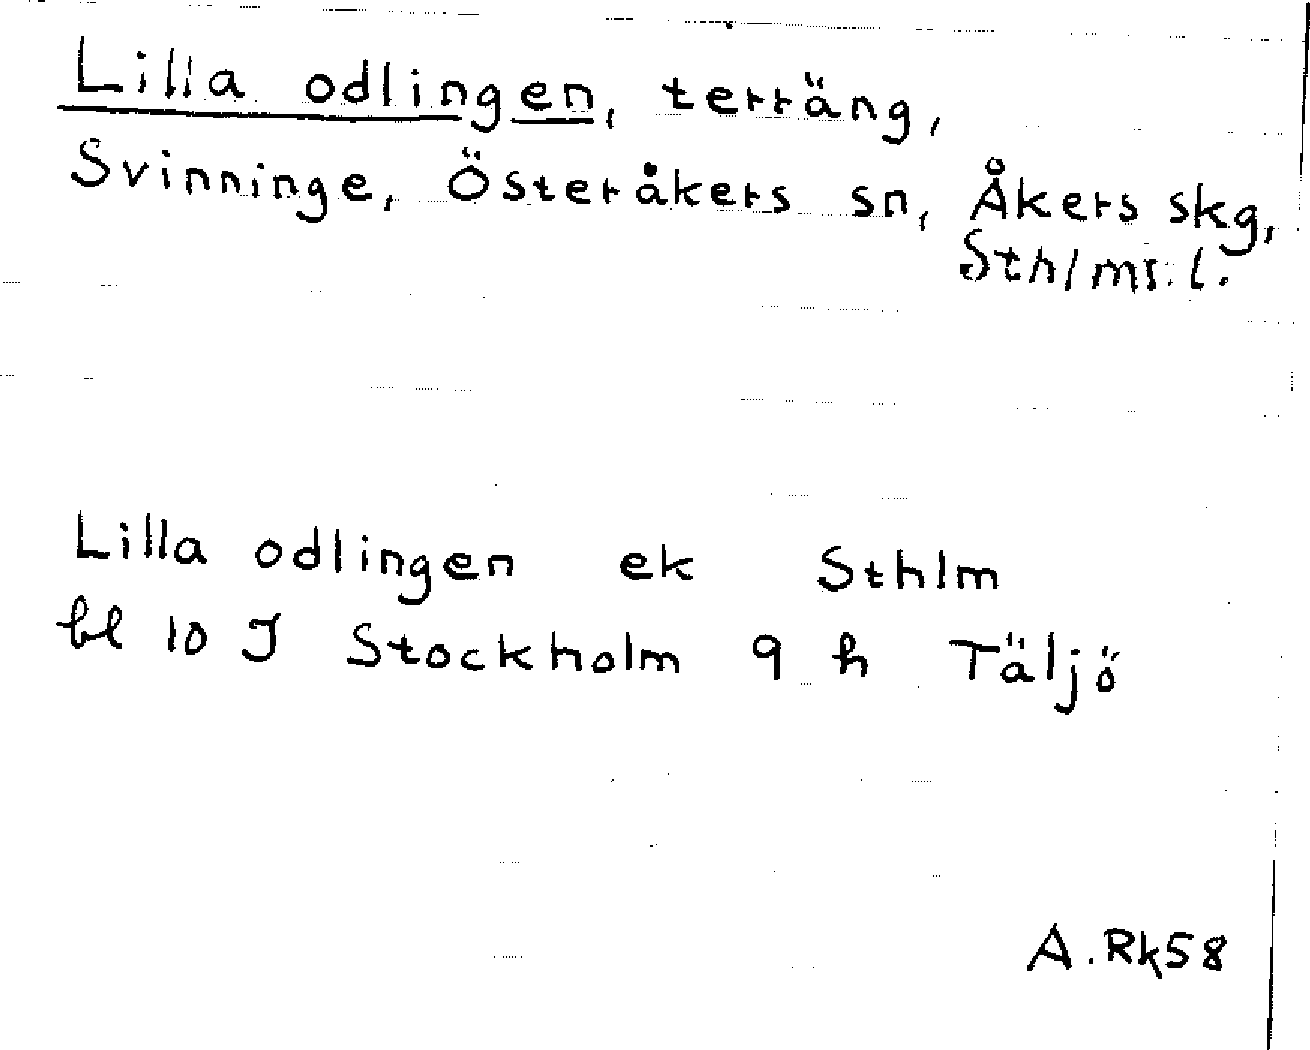 Lilla odlingen, terräng,
Svinninge, Österåkers sn, Åkers skg,
Sthlms. l.
Lilla odlingen ek Sthlm
bl 10 J Stockholm 9 h Täljö
A. Rk58